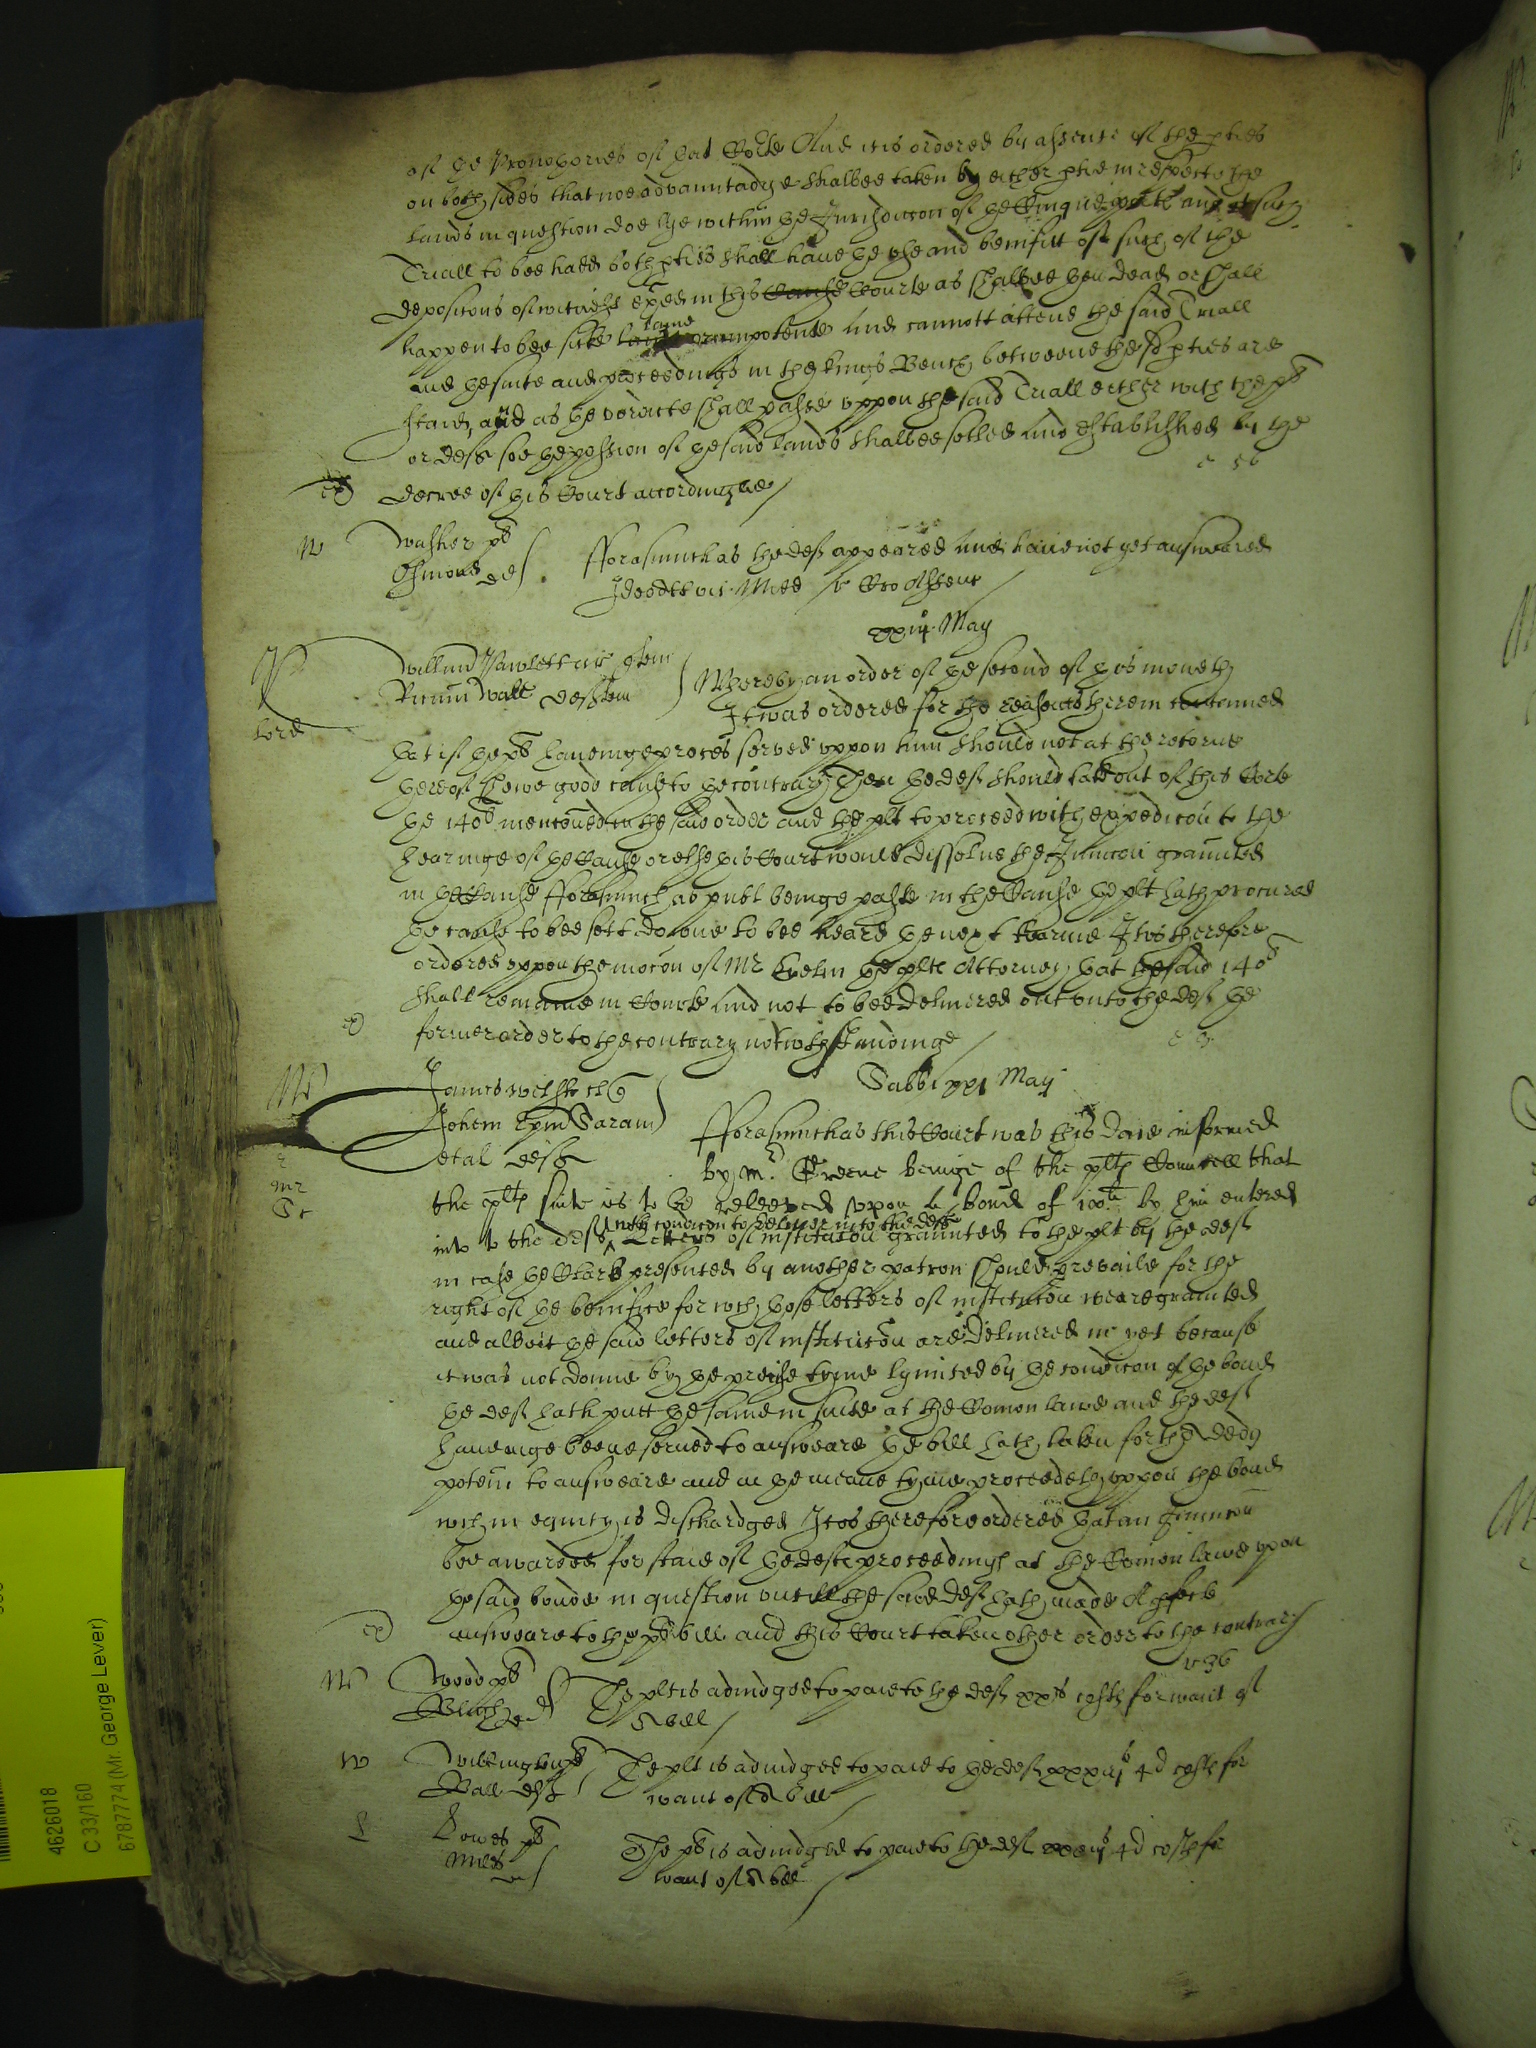 of the Prothonories of that Corte And it is ordered by assente of the pties
on both sides that noe advauntadge shalbee taken by either ptie in respecte the
lands in question doe lye within the Jurisdiccon of the Cinque and at such
Triall to bee hadd both pties shall haue the vse and benifitt of such of the
deposicons of witness exaied in this Cause Courte as shalbee then dead or shall
happen to bee sicke lame or impotente and cannott attend the said Triall
And the suite and proceedings in the kings Bench betweene the sd pties are
staied, and as the verdicte shall passe vppon the said Triall either with the pl
or deft soe the possion of the said lands shalbee setled and established by the
decree of this Court accordinglie
W
Walker pl
Osmond def
fforasmuch as the def appeared and haue not yet answeared
Ideo attach vic Midd
xxiij May
lord
Willmus Pawlett ar
Wall
Where by an order of the second of this moneth
It was ordered for the reasons therein conteined
that if the pl haueinge proces served vppon him should not at the retorne
thereof shewe good cause to the contrary Then the def should take out of this Corte
the 140l mencoued in the said order and the plt to proceed with expedicon to the
hearinge of the Cause or else this Court would dissolue the Iniuncon graunted
in the Cause fforasmuch as publ beinge paste in the Cause the plt hath procured
the cause to bee sett downe to bee heard the next tearme It is therefore
ordered vppon the mocon of Mr Evelin the plts Attorney that the said 140l
shall remaine in Courte and not to bee deliuered out vnto the def the
former order to the contrary notwithstandinge
Sabbi xxj May
James
Johem Epm Sarum
et al defts
fforasmuch as this Court was this daie informed
by Mr. Greene beinge of the plts Councell that
the plts suite is to be releeved vpon a bond of 100li by him entered
into to the defts with condicon to deliuer in to the deft Letters of institucon graunted to the plt by the def
in case the Clark presented by another patron should prevaile for the
right of the benifice for wch those letters of institucon weare graunted
and albeit the said letters of institucon are deliuered in yet because
it was not donne by the precise tyme lymited by the condicon of the bond
the def hath putt the same in suite at the Comon lawe and the def
haueinge beene serued to answeare the bill hath taken forth a dedy
potem to answeare and in the meane tyme proceedeth vppon the bond
wch in equity is dischardged It is therefore ordered that an Iniuncon
bee awarded for staie of the defts proceedings at the Comon lawe vpon
the said bonde in question vntill the said def hath made a pfecte
answeare to the pl bill and this Court taken other order to the contrary
W
Wood pl
def
The plt is adiudged to paie to the def xxs costs for want of
A bill
W
pl
Ball def
The plt is adiudged to paie to the def xxxiijs 4d costs for
want of A bill
L
Lowes pl
Miles
def
The pl is adiudged to paie to the def xxxiijs 4d costs for
want of A bill
4626018
C 33/160
6787774 (Mr. George Lever)